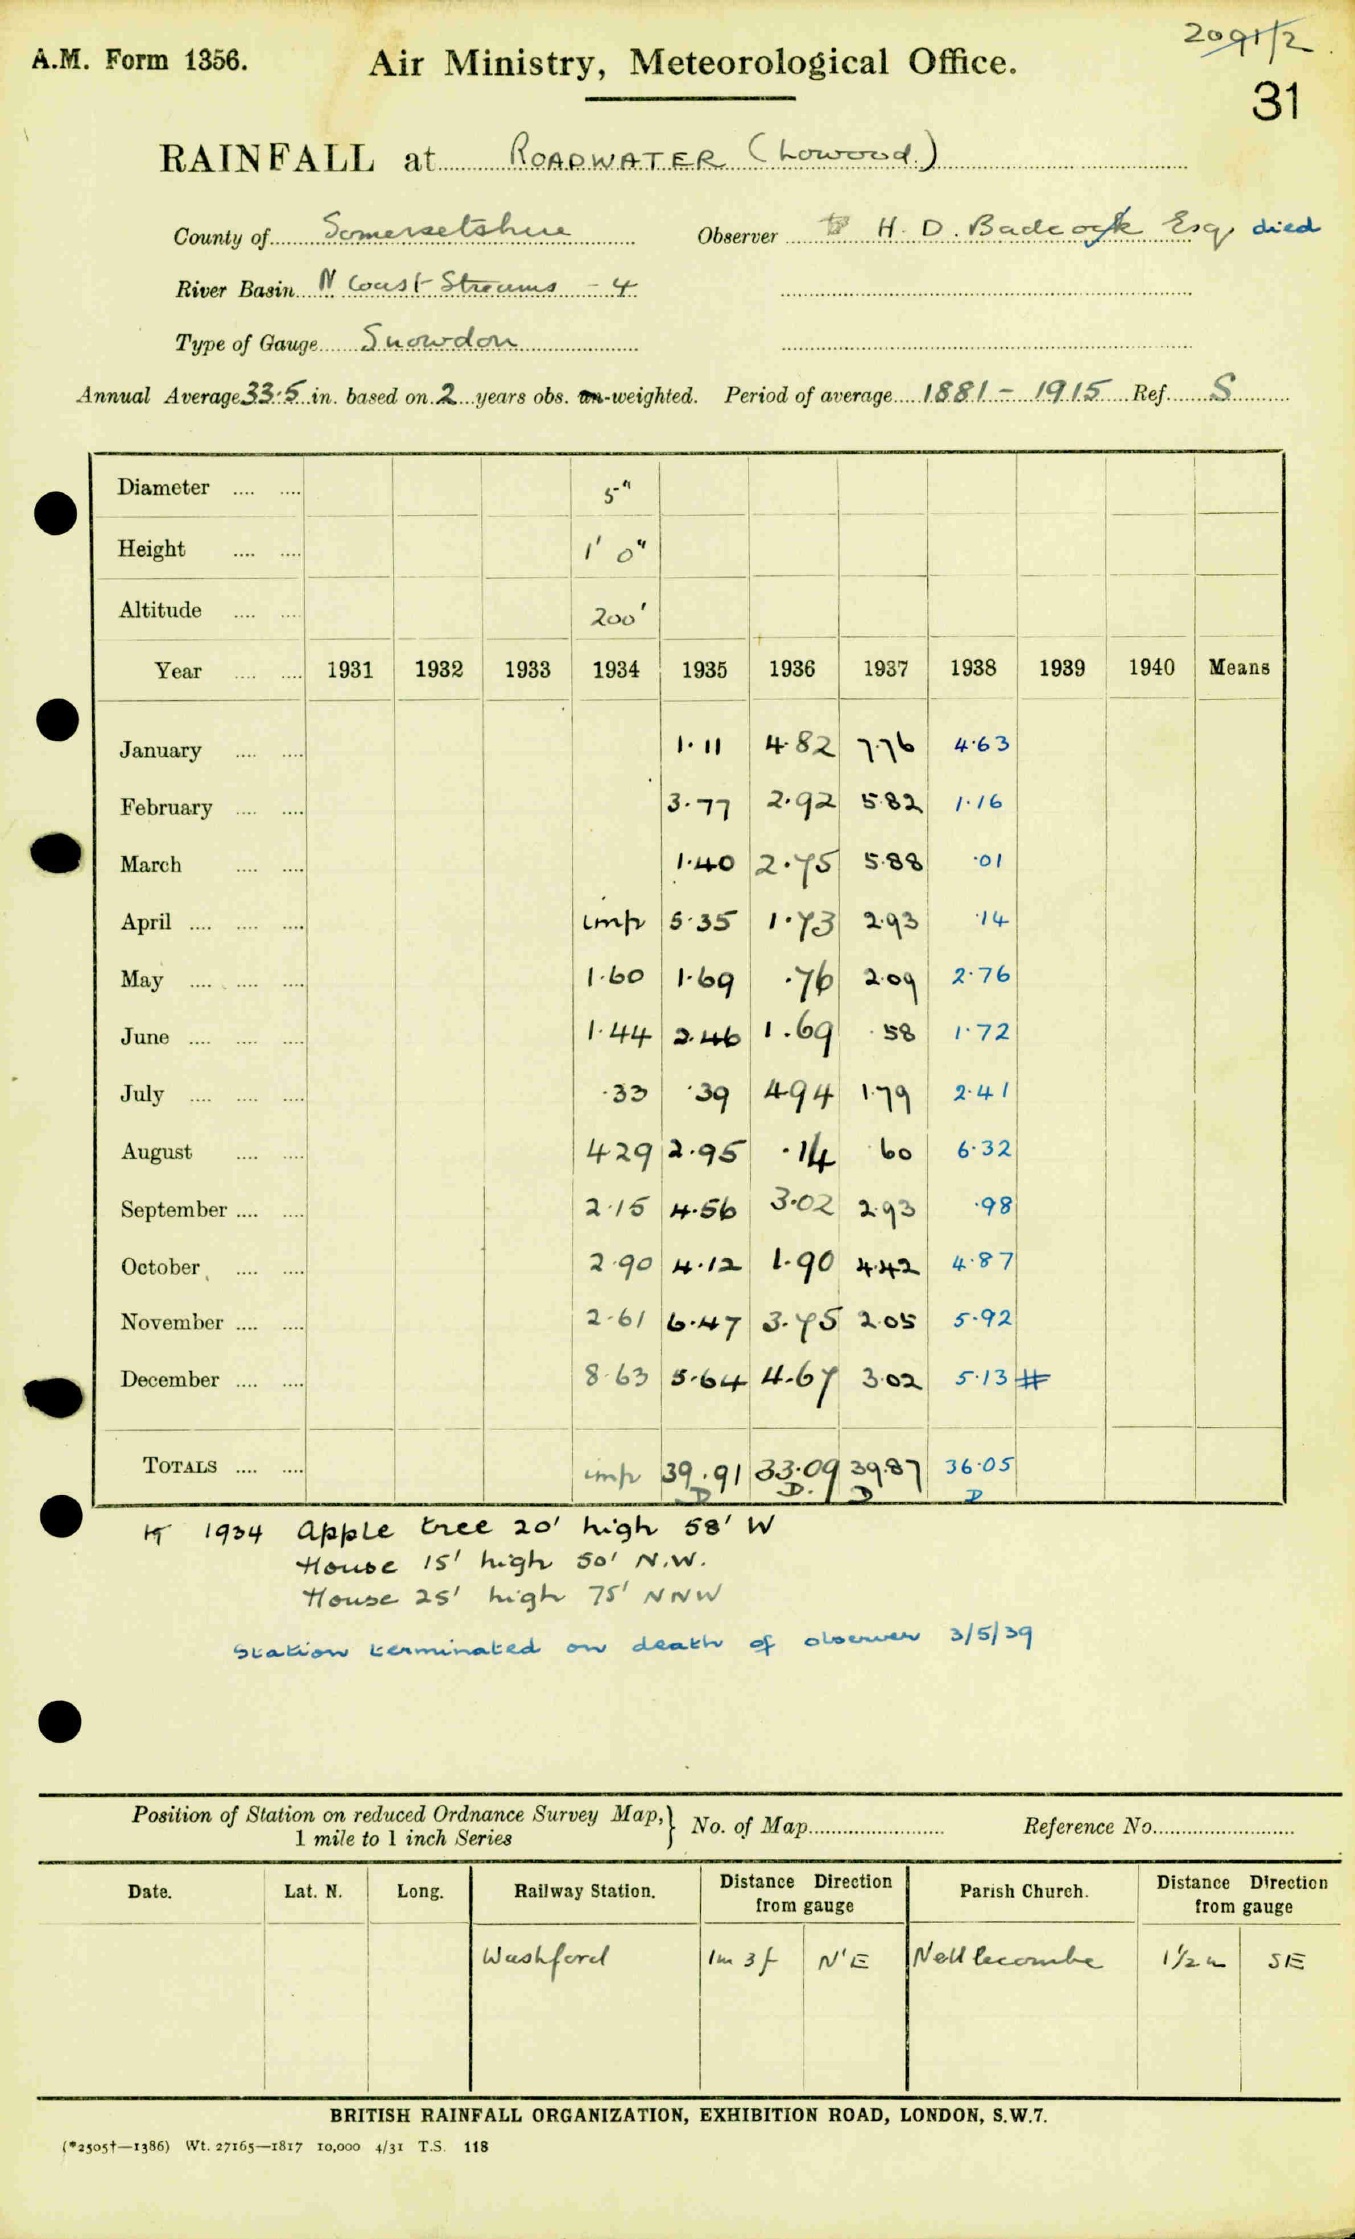 2091/2
A.M. Form 1356. Air Ministry, Meteorological Office.
31
RAINFALL at ROADWATER (Lowood)
County of Somersetshire Observer H. D. Badcock Esq. died
River Basin N Coast Streams - 4
Type of Gauge Snowdon
Annual Average 33.5 in. based on 2 years obs. un-weighted. Period of average 1881 - 1915 Ref. S
Diameter .... .... 5"
Height .... .... 1' 0"
Altitude .... .... 200'
Year .... .... 1931 1932 1933 1934 1935 1936 1937 1938 1939 1940 Means
January .... .... 1.11 4.82 7.76 4.63
February .... .... 3.77 2.92 5.82 1.16
March .... .... 1.40 2.75 5.88 .01
April .... .... .... imp 5.35 1.73 2.93 .14
May .... .... .... 1.60 1.69 .76 2.09 2.76
June .... .... .... 1.44 2.46 1.69 .58 1.72
July .... .... .... .33 .39 4.94 1.79 2.41
August .... .... 4.29 2.95 .14 .60 6.32
September .... .... 2.15 4.56 3.02 2.93 .98
October .... .... 2.90 4.12 1.90 4.42 4.87
November .... .... 2.61 6.47 3.75 2.05 5.92
December .... .... 8.63 5.64 4.67 3.02 5.13 #
TOTALS .... .... imp 39.91 33.09 39.87 36.05
D D. D D
1934 Apple tree 20' high 58' W
House 15' high 50' N.W.
House 25' high 75' NNW
Station terminated on death of observer 3/5/39
Position of Station on reduced Ordnance Survey Map,} No. of Map Reference No.
1 mile to 1 inch Series
Date. Lat. N. Long. Railway Station. Distance Direction from gauge Parish Church. Distance Direction from gauge
Washford 1m 3f N'E Nettlecombe 1½ m SE
BRITISH RAINFALL ORGANIZATION, EXHIBITION ROAD, LONDON, S.W.7.
(*2505†—1386) Wt. 27165—1817 10,000 4/31 T.S. 118